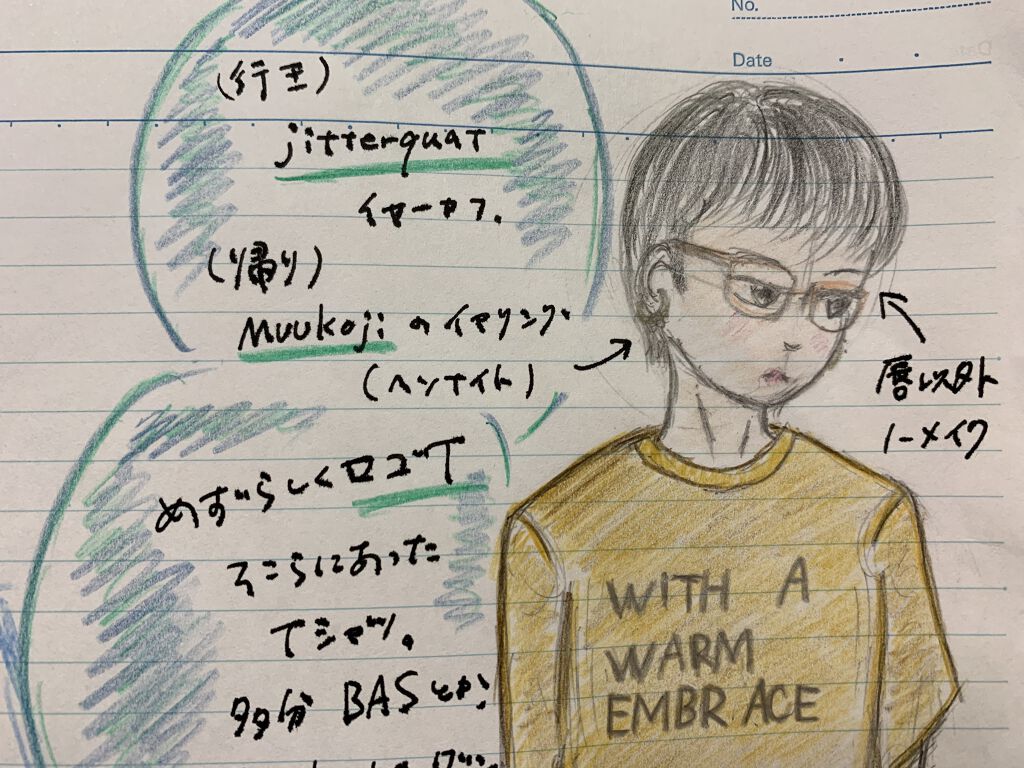 No.
Date
(行き)
jitterquat
イヤーカフ。
(帰り)
Muukojiのイヤリング
(ヘンナイト)
唇以外
ノーメイク
めずらしくロゴT
そこらにあった
Tシャツ。
多分 BASとか
WITH A
WARM
EMBRACE